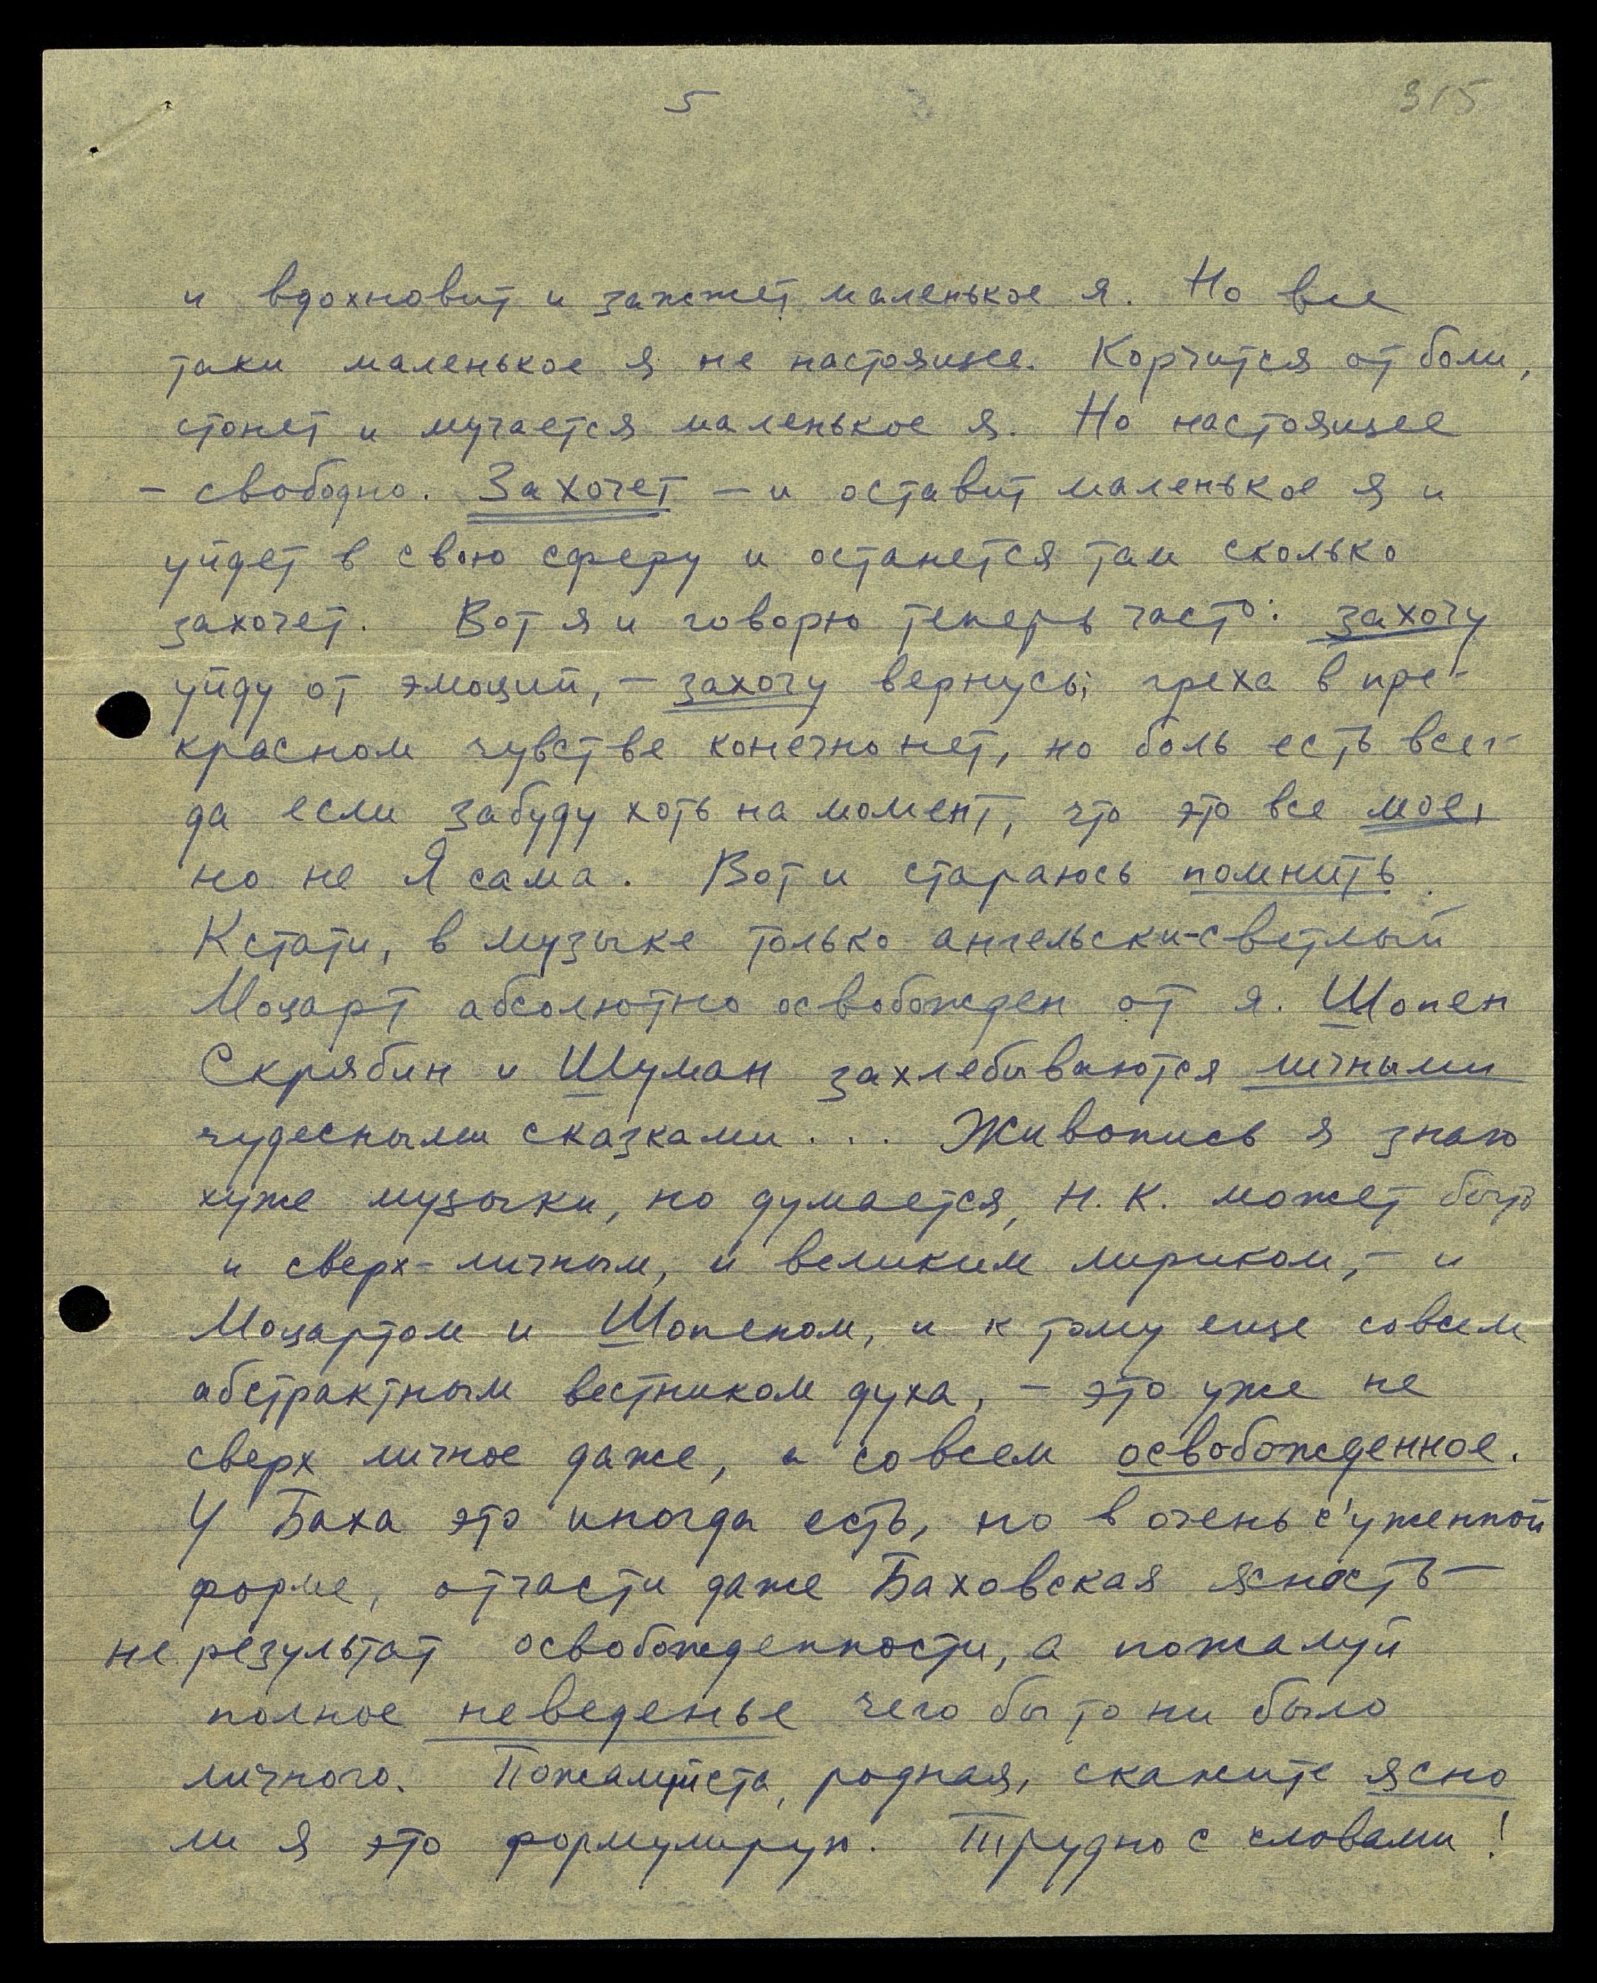 5
315
и вдохновит и зажжет маленькое я. Но все
таки маленькое я не настоящее. Корчится от боли,
стонет и мучается маленькое я. Но настоящее
- свободно. Захочет - и оставит маленькое я и
уйдет в свою сферу и останется там сколько
захочет. Вот я и говорю теперь часто: захочу
уйду от эмоций, - захочу вернусь; греха в пре-
красном чувстве конечно нет, но боль есть всег-
да если забуду хоть на момент, что это все мое,
но не Я сама. Вот и стараюсь помнить.
Кстати, в музыке только ангельски-светлый
Моцарт абсолютно освобожден от я. Шопен
Скрябин и Шуман захлебываются личными
чудесными сказками... Живопись я знаю
хуже музыки, но думается, Н.К. может быть
и сверх-личным, и великим лириком, - и
Моцартом и Шопеном, и к тому еще совсем
абстрактным вестником духа, - это уже не
сверх личное даже, а совсем освобожденное.
У Баха это иногда есть, но в очень с'уженной
форме, отчасти даже Баховская ясность -
не результат освобожденности, а пожалуй
полное неведенье чего бы то ни было
личного. Пожалуйста, родная, скажите ясно
ли я это формулирую. Трудно с словами!